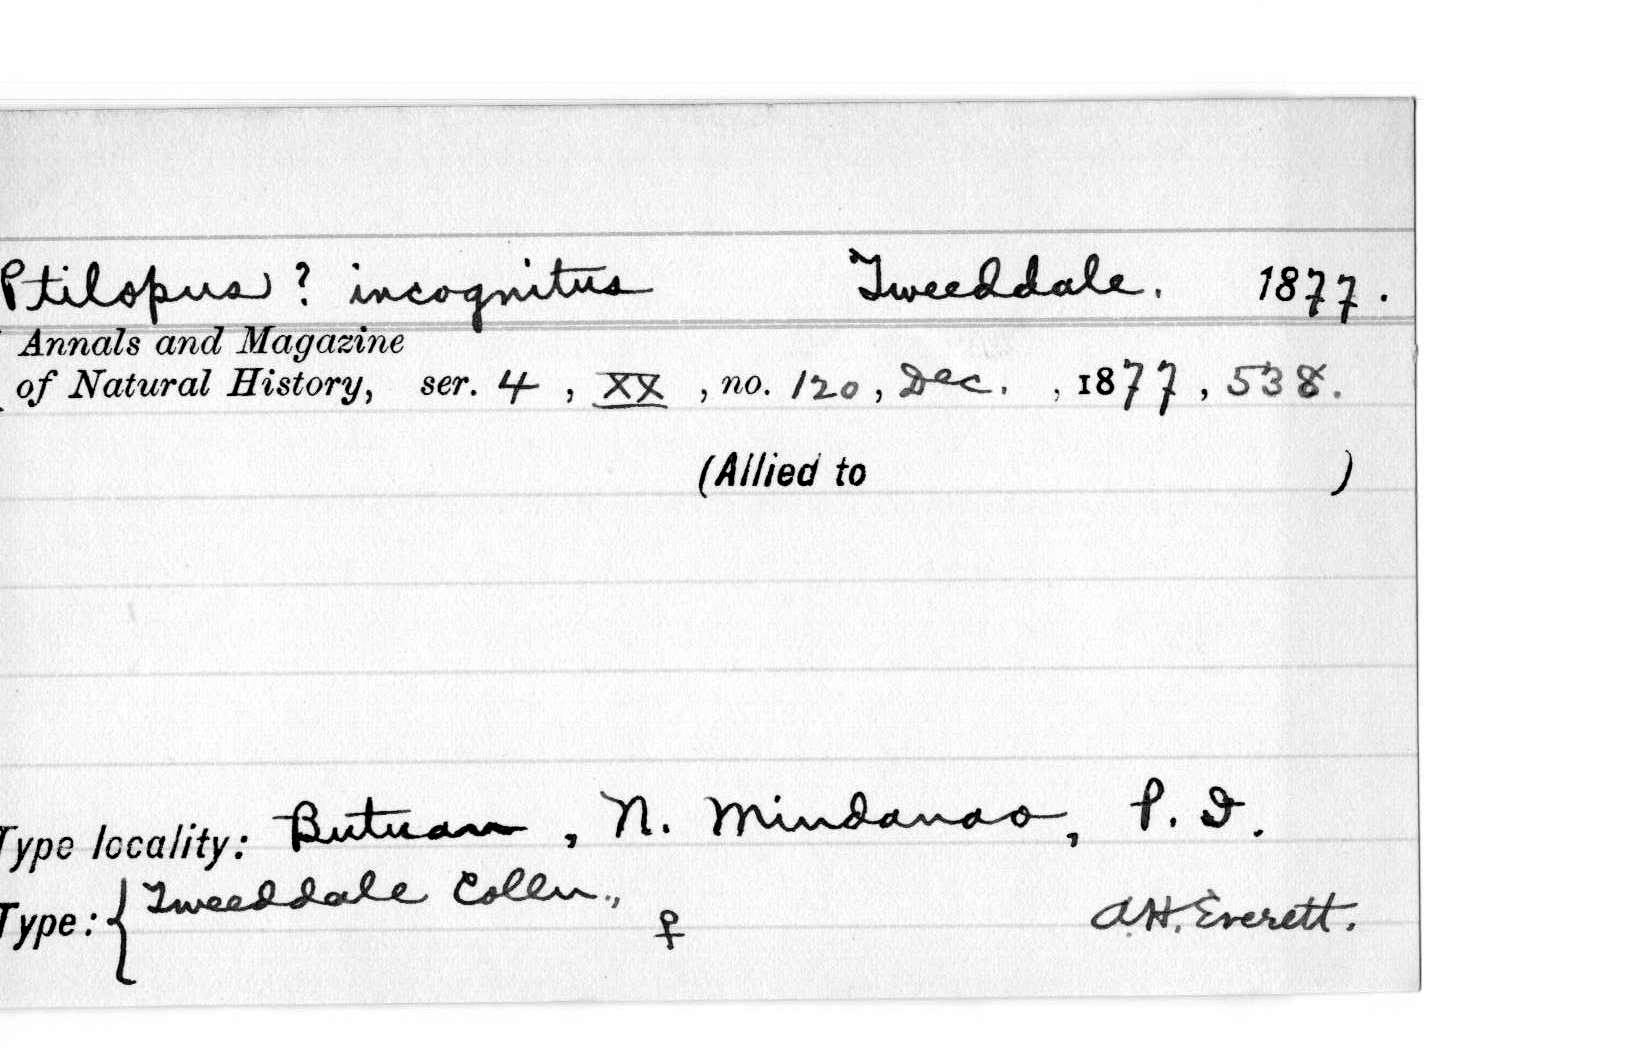 Ptilopus ? incognitus Tweeddale. 1877.
Annals and Magazine
of Natural History, ser. 4, XX, no. 120, Dec. , 1877, 538.
(Allied to )
Type locality: Butuan, N. Mindanao, P. I.
Type: { Tweeddale Colln., ♀ A.H. Everett.